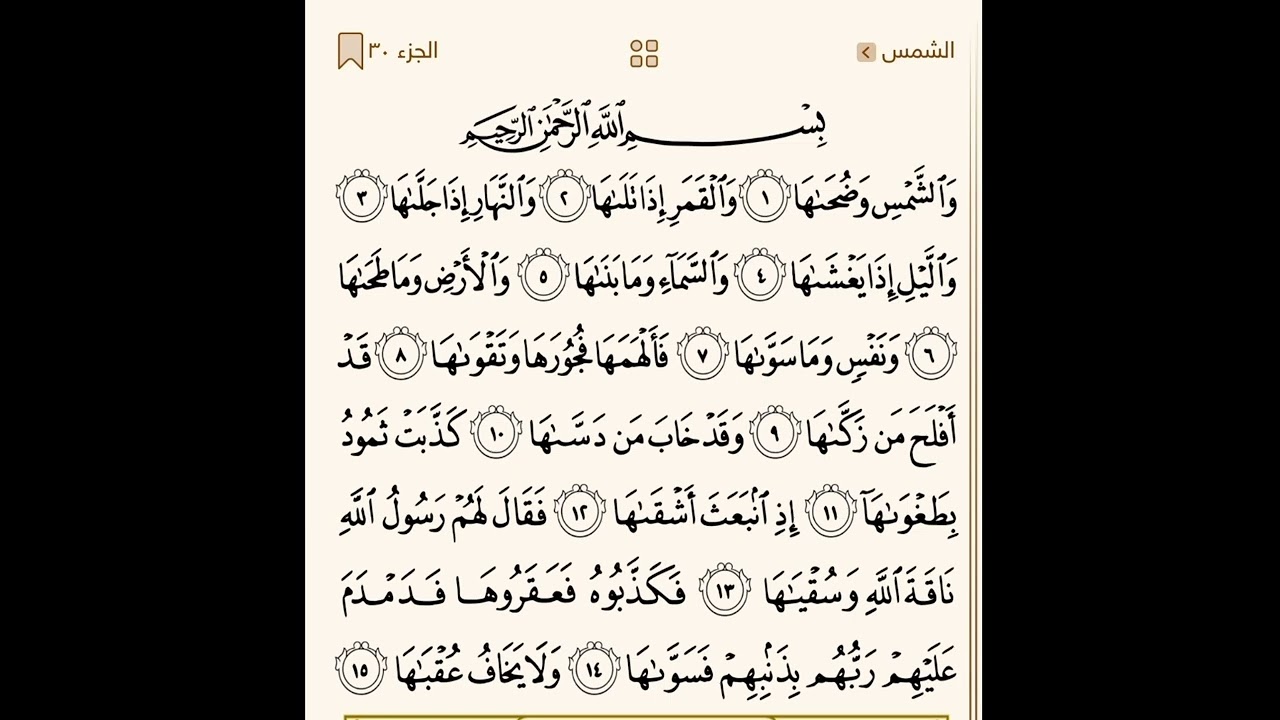 الشمس الجزء ٣٠
بِسْمِ ٱللَّهِ ٱلرَّحْمَٰنِ ٱلرَّحِيمِ
وَٱلشَّمْسِ وَضُحَىٰهَا ١ وَٱلْقَمَرِ إِذَا تَلَىٰهَا ٢ وَٱلنَّهَارِ إِذَا جَلَّىٰهَا ٣
وَٱلَّيْلِ إِذَا يَغْشَىٰهَا ٤ وَٱلسَّمَآءِ وَمَا بَنَىٰهَا ٥ وَٱلْأَرْضِ وَمَا طَحَىٰهَا
٦ وَنَفْسٍ وَمَا سَوَّىٰهَا ٧ فَأَلْهَمَهَا فُجُورَهَا وَتَقْوَىٰهَا ٨ قَدْ
أَفْلَحَ مَن زَكَّىٰهَا ٩ وَقَدْ خَابَ مَن دَسَّىٰهَا ١٠ كَذَّبَتْ ثَمُودُ
بِطَغْوَىٰهَآ ١١ إِذِ ٱنۢبَعَثَ أَشْقَىٰهَا ١٢ فَقَالَ لَهُمْ رَسُولُ ٱللَّهِ
نَاقَةَ ٱللَّهِ وَسُقْيَٰهَا ١٣ فَكَذَّبُوهُ فَعَقَرُوهَا فَدَمْدَمَ
عَلَيْهِمْ رَبُّهُم بِذَنۢبِهِمْ فَسَوَّىٰهَا ١٤ وَلَا يَخَافُ عُقْبَٰهَا ١٥